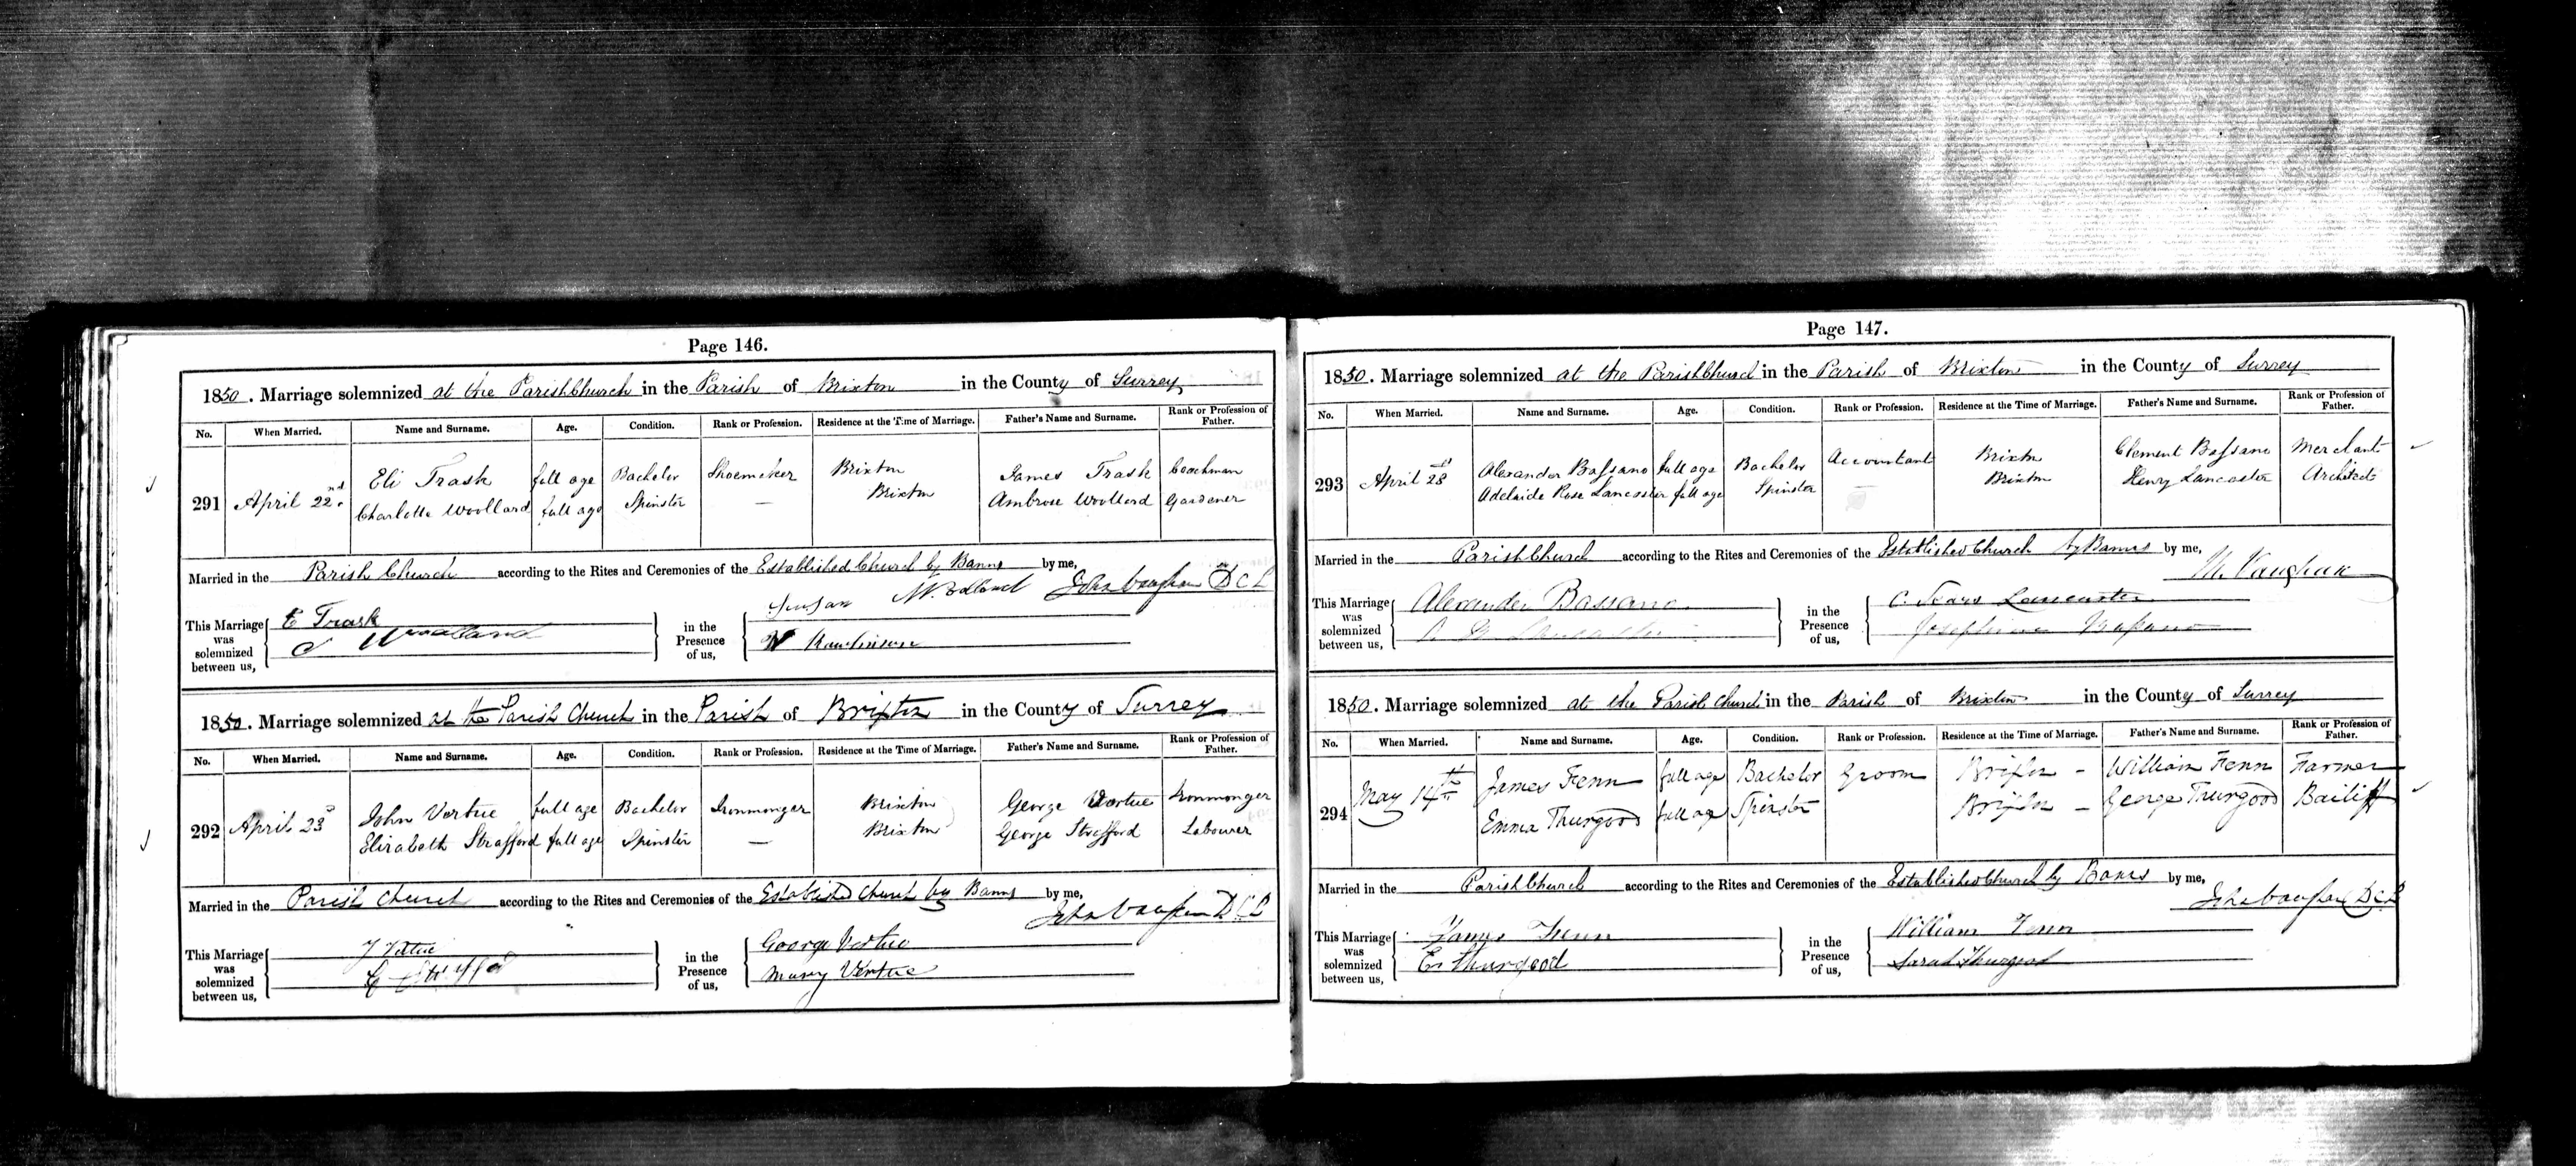 Page 146.
1850. Marriage solemnized at the Parish Church in the Parish of Brixton in the County of Surrey
No. When Married. Name and Surname. Age. Condition. Rank or Profession. Residence at the Time of Marriage. Father's Name and Surname. Rank or Profession of Father.
291 April 22nd. Eli Trask full age Bachelor Shoemaker Brixton James Trask Coachman
Charlotte Woollard full age Spinster — Brixton Ambrose Woollard Gardener
Married in the Parish Church according to the Rites and Ceremonies of the Established Church by Banns by me,
John Vaughan DCL
This Marriage was solemnized between us, E Trask
C Woolland
in the Presence of us,
W
1850. Marriage solemnized at the Parish Church in the Parish of Brixton in the County of Surrey
No. When Married. Name and Surname. Age. Condition. Rank or Profession. Residence at the Time of Marriage. Father's Name and Surname. Rank or Profession of Father.
292 April 23d John Vertue full age Bachelor Ironmonger Brixton George Vertue Ironmonger
Elizabeth Strafford full age Spinster — Brixton George Strafford Labourer
Married in the Parish Church according to the Rites and Ceremonies of the Established Church by Banns by me,
John Vaughan DCL
This Marriage was solemnized between us, J Vertue
E
in the Presence of us, George Vertue
Mary Vertue
Page 147.
1850. Marriage solemnized at the Parish Church in the Parish of Brixton in the County of Surrey
No. When Married. Name and Surname. Age. Condition. Rank or Profession. Residence at the Time of Marriage. Father's Name and Surname. Rank or Profession of Father.
293 April 28 Alexander Bassano full age Bachelor Accountant Brixton Clement Bassano Merchant
Adelaide Rose Lancaster full age Spinster — Brixton Henry Lancaster Architect
Married in the Parish Church according to the Rites and Ceremonies of the Established Church by Banns by me,
Vaughan
This Marriage was solemnized between us, Alexander Bassano
A R Lancaster
in the Presence of us, C. Sears Lancaster
Josephine Bassano
1850. Marriage solemnized at the Parish Church in the Parish of Brixton in the County of Surrey
No. When Married. Name and Surname. Age. Condition. Rank or Profession. Residence at the Time of Marriage. Father's Name and Surname. Rank or Profession of Father.
294 May 14th James Fenn full age Bachelor Groom Brixton - William Fenn Farmer
Emma Thurgood full age Spinster Brixton - George Thurgood Bailiff
Married in the Parish Church according to the Rites and Ceremonies of the Established Church by Banns by me,
John Vaughan DCL
This Marriage was solemnized between us, James Fenn
E. Thurgood
in the Presence of us, William Fenn
Sarah Thurgood